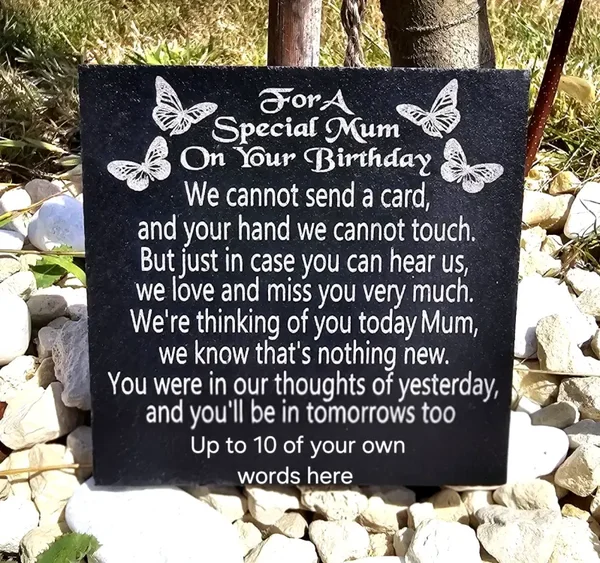 For A
Special Mum
On Your Birthday
We cannot send a card,
and your hand we cannot touch.
But just in case you can hear us,
we love and miss you very much.
We're thinking of you today Mum,
we know that's nothing new.
You were in our thoughts of yesterday,
and you'll be in tomorrows too
Up to 10 of your own
words here